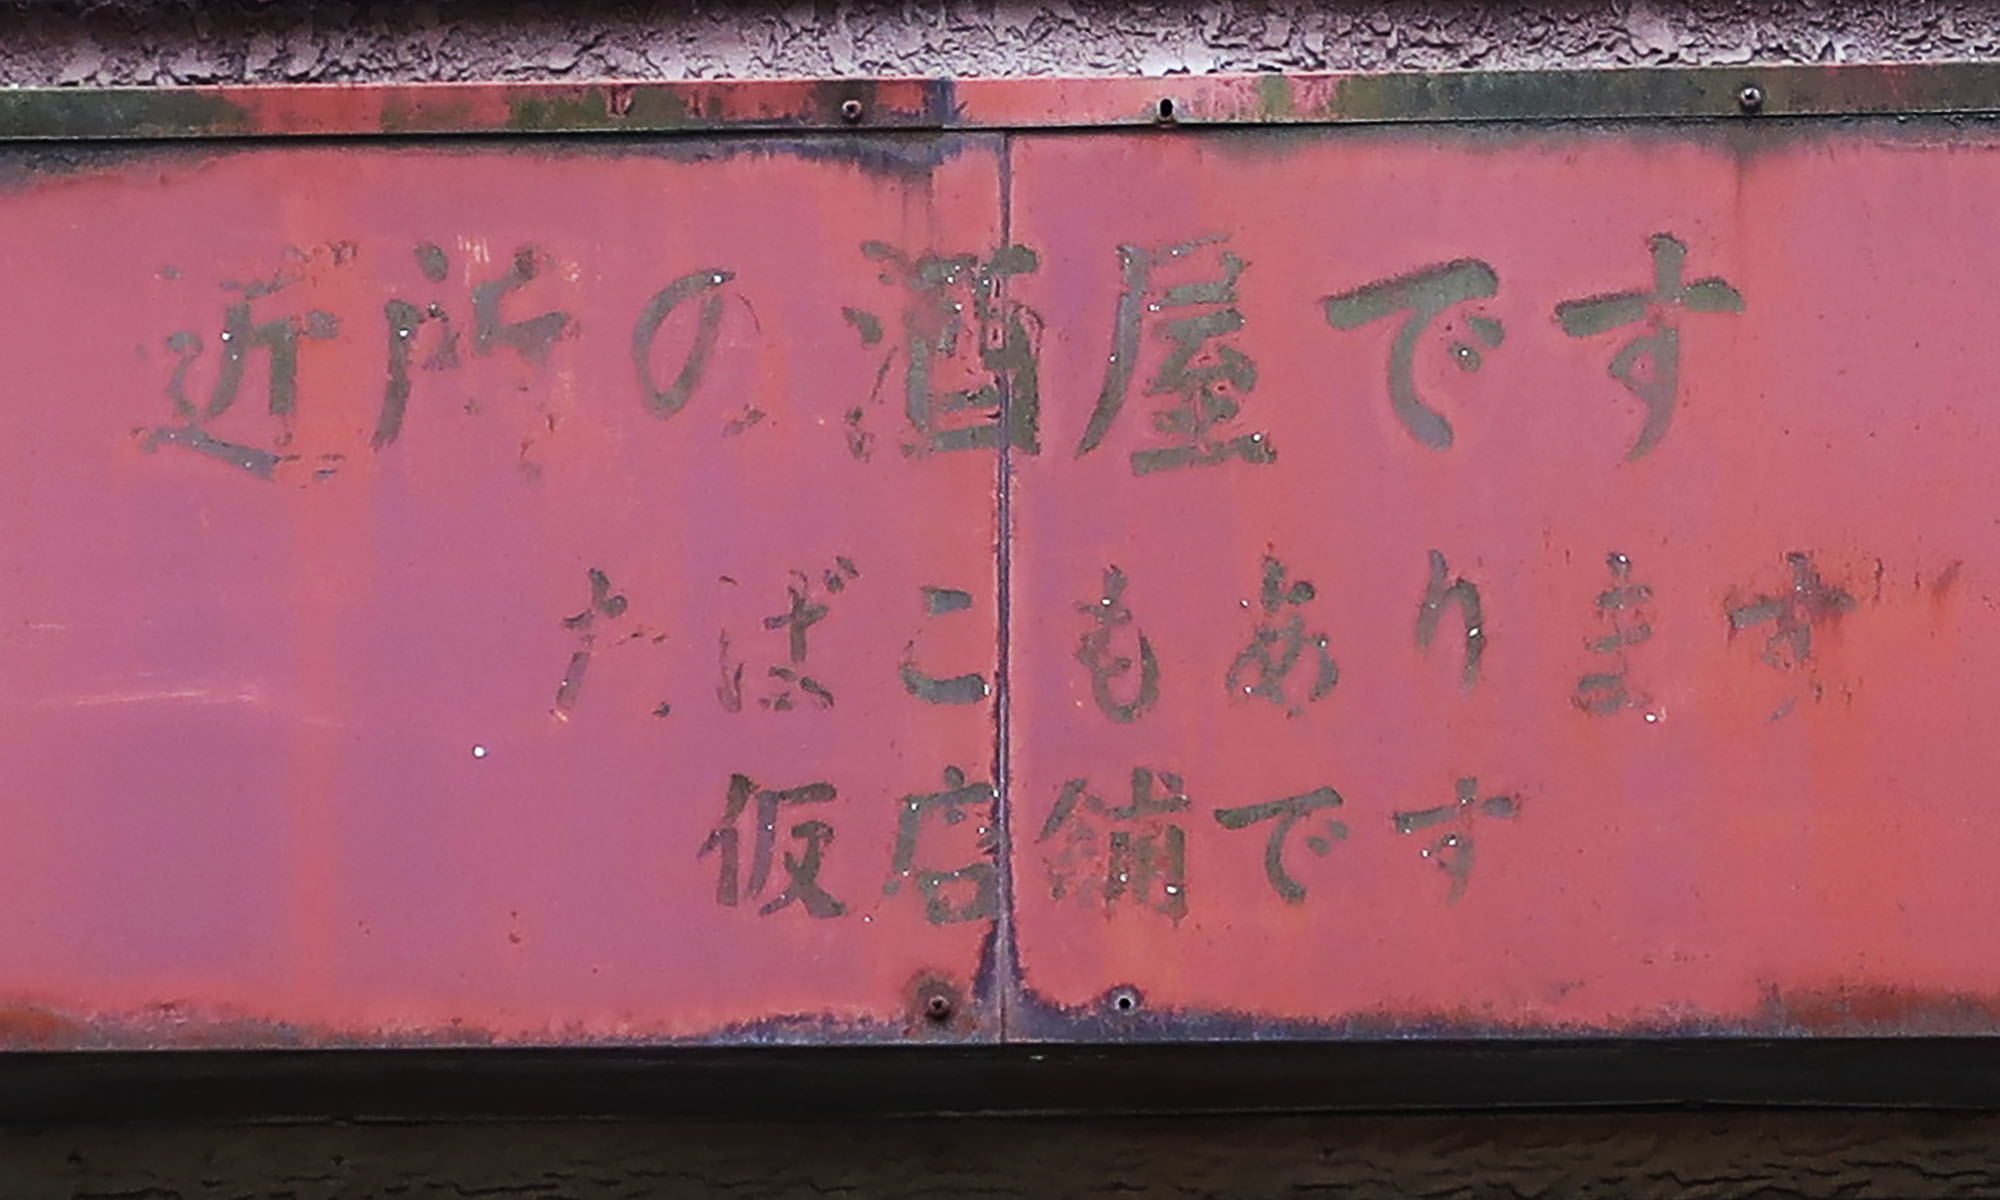 近所の酒屋です
たばこもあります
仮店舗です